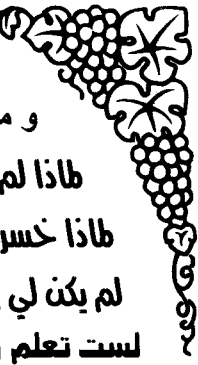 و م
لماذا لم
لماذا خسر
لم يكن لي
لست تعلم